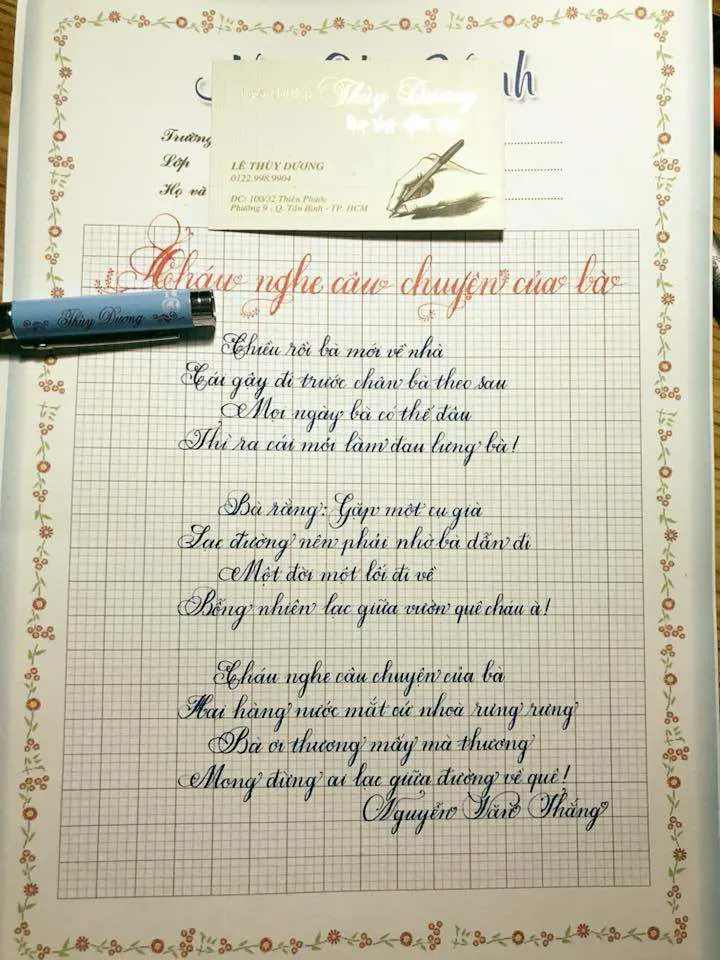 nh
Luyện chữ đẹp Thùy Dương
Trường
LÊ THÙY DƯƠNG
0122.998.9904
Lớp
Họ và
ĐC: 100/32 Thiên Phước
Phường 9 - Q. Tân Bình - TP. HCM
Cháu nghe câu chuyện của bà
Thùy Dương
Chiều rồi bà mới về nhà
Cái gậy đi trước chân bà theo sau
Mọi ngày bà có thế đâu
Thì ra cái mỏi làm đau lưng bà!
Bà rằng: Gặp một cụ già
Lạc đường nên phải nhờ bà dẫn đi
Một đời một lối đi về
Bỗng nhiên lạc giữa vườn quê cháu à!
Cháu nghe câu chuyện của bà
Hai hàng nước mắt cứ nhoà rưng rưng
Bà ơi thương mấy mà thương
Mong đừng ai lạc giữa đường về quê!
Nguyễn Văn Thắng